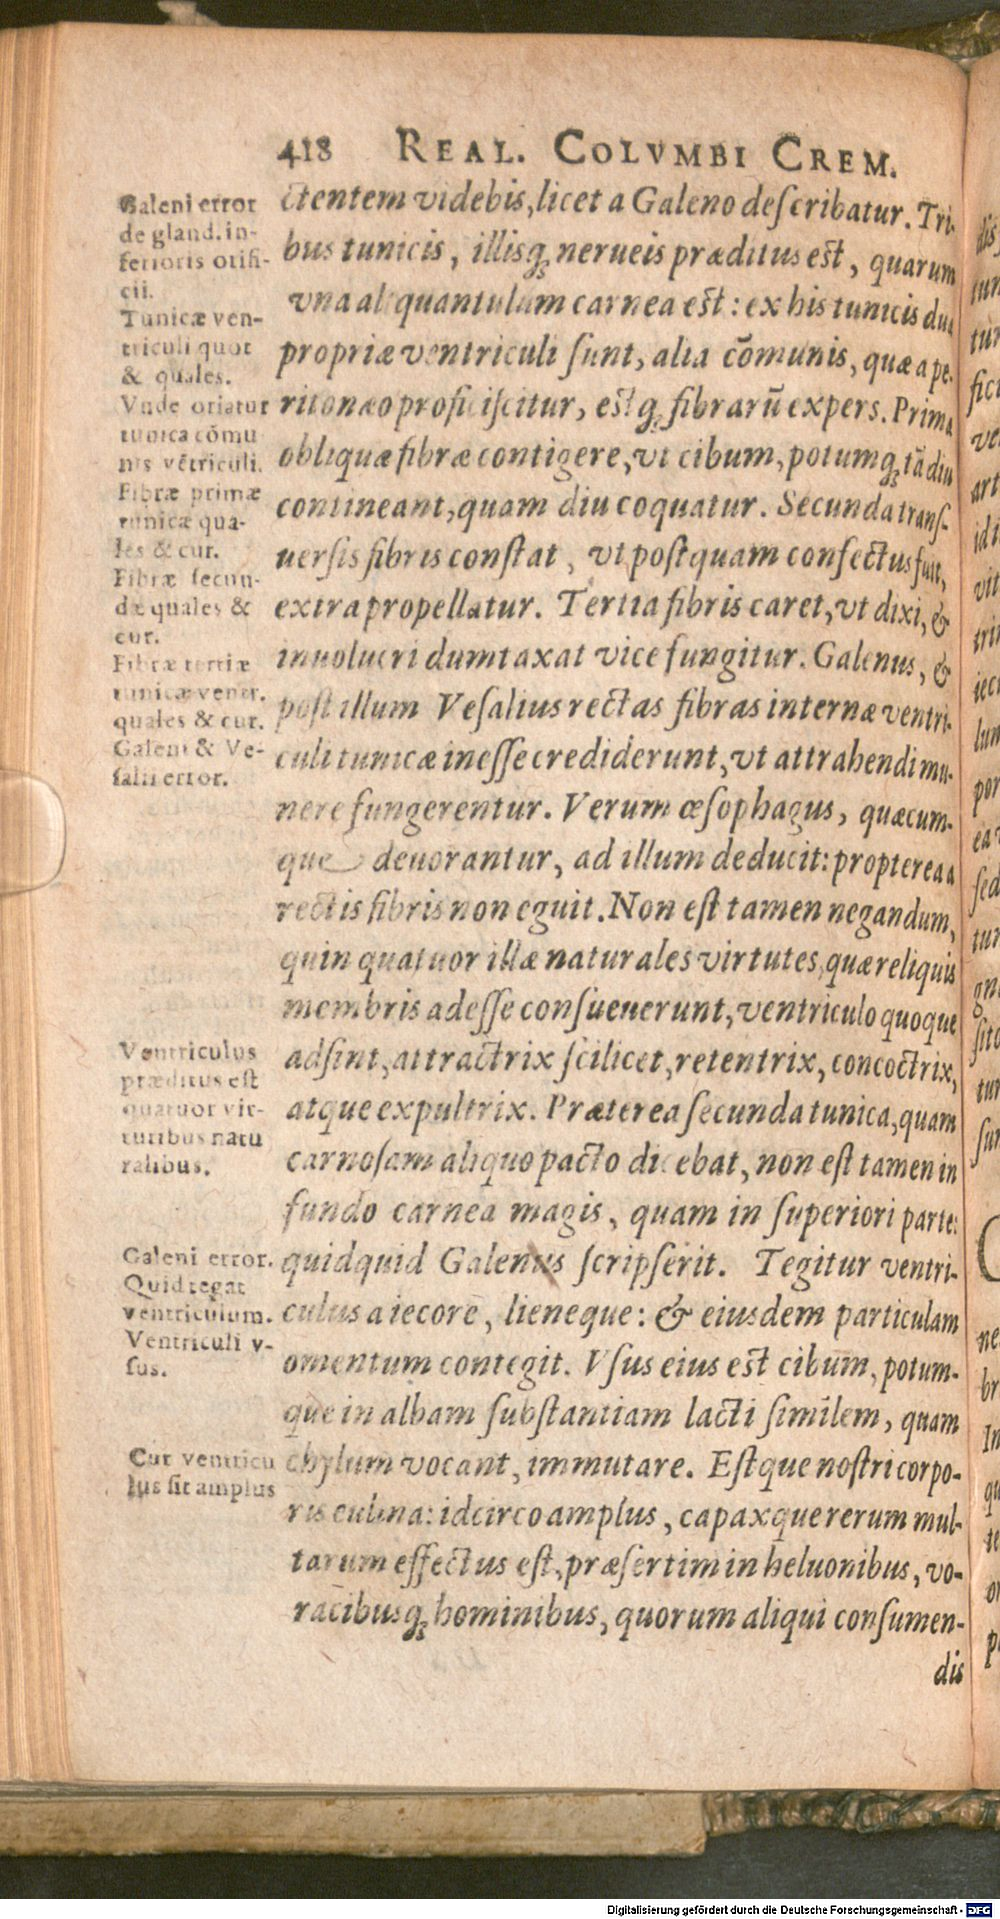 418 REAL. COLVMBI CREM.
Galeni error
de gland. in-
ferioris orifi-
cii.
Tunicæ ven-
triculi quot
& quales.
Vnde oriatur
tunica cõmu
nis vẽtriculi.
Fibræ primæ
tunicæ qua-
les & cur.
Fibræ secun-
dæ quales &
cur.
Fibræ tertiæ
tunicæ ventr.
quales & cur.
Galeni & Ve-
salii error.
Ventriculus
præditus est
quatuor vir-
tutibus natu
ralibus.
Galeni error.
Quid tegat
ventriculum.
Ventriculi v-
sus.
Cur ventricu
lus sit amplus
ctentem videbis, licet a Galeno deſcribatur. Tri-
bus tunicis, illisq́; nerueis præditus est, quarum
vna aliquantulum carnea est: ex his tunicis duæ
propriæ ventriculi ſunt, alia cõmunis, quæ a pe-
ritonæo proficiſcitur, estq́; fibrarũ expers. Prima
obliquæ fibræ contigere, vt cibum, potumq́; tã diu
contineant, quam diu coquatur. Secunda tranſ-
uerſis fibris conſtat, vt poſtquam confectus fuit,
extra propellatur. Tertia fibris caret, vt dixi, &
inuolucri dumtaxat vice fungitur. Galenus, &
poſt illum Veſalius rectas fibras internæ ventri-
culi tunicæ ineſſe crediderunt, vt attrahendi mu-
nere fungerentur. Verum œſophagus, quæcum-
que deuorantur, ad illum deducit: propterea a
rectis fibris non eguit. Non eſt tamen negandum,
quin quatuor illæ naturales virtutes, quæ reliquis
membris adeſſe conſueuerunt, ventriculo quoque
adſint, attractrix ſcilicet, retentrix, concoctrix,
atque expultrix. Præterea ſecunda tunica, quam
carnoſam aliquo pacto dicebat, non eſt tamen in
fundo carnea magis, quam in ſuperiori parte:
quidquid Galenus ſcripſerit. Tegitur ventri-
culus a iecore, lieneque: & eiusdem particulam
omentum contegit. Vſus eius est cibum, potum-
que in albam ſubſtantiam lacti ſimilem, quam
chylum vocant, immutare. Eſtque noſtri corpo-
ris culina: idcirco amplus, capaxque rerum mul-
tarum effectus eſt, præſertim in heluonibus, vo-
racibusq́; hominibus, quorum aliqui conſumen-
dis
Digitalisierung gefördert durch die Deutsche Forschungsgemeinschaft - DFG